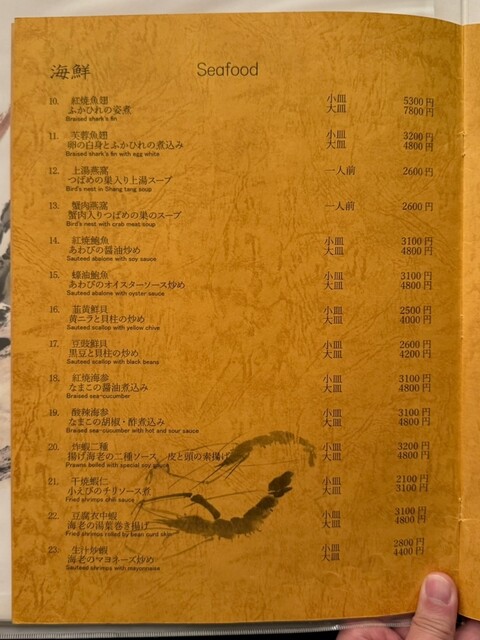 海鮮 Seafood
10. 紅焼魚翅 小皿 5300円
ふかひれの姿煮 大皿 7800円
Braised shark's fin
11. 芙蓉魚翅 小皿 3200円
卵の白身とふかひれの煮込み 大皿 4800円
Braised shark's fin with egg white
12. 上湯燕窩 一人前 2600円
つばめの巣入り上湯スープ
Bird's nest in Shang tang soup
13. 蟹肉燕窩 一人前 2600円
蟹肉入りつばめの巣のスープ
Bird's nest with crab meat soup
14. 紅焼鮑魚 小皿 3100円
あわびの醤油炒め 大皿 4800円
Sauteed abalone with soy sauce
15. 蠔油鮑魚 小皿 3100円
あわびのオイスターソース炒め 大皿 4800円
Sauteed abalone with oyster sauce
16. 韮黄鮮貝 小皿 2500円
黄ニラと貝柱の炒め 大皿 4000円
Sauteed scallop with yellow chive
17. 豆豉鮮貝 小皿 2600円
黒豆と貝柱の炒め 大皿 4200円
Sauteed scallop with black beans
18. 紅焼海参 小皿 3100円
なまこの醤油煮込み 大皿 4800円
Braised sea-cucumber
19. 酸辣海参 小皿 3100円
なまこの胡椒・酢煮込み 大皿 4800円
Braised sea-cucumber with hot and sour sauce
20. 炸蝦二種 小皿 3200円
揚げ海老の二種ソース 皮と頭の素揚げ 大皿 4800円
Prawns boiled with special soy sauce
21. 干焼蝦仁 小皿 2100円
小えびのチリソース煮 大皿 3100円
Fried shrimps chili sauce
22. 豆腐衣中蝦 小皿 3100円
海老の湯葉巻き揚げ 大皿 4800円
Fried shrimps rolled by bean curd skin
23. 生汁炒蝦 小皿 2800円
海老のマヨネーズ炒め 大皿 4400円
Sauteed shrimps with mayonnaise